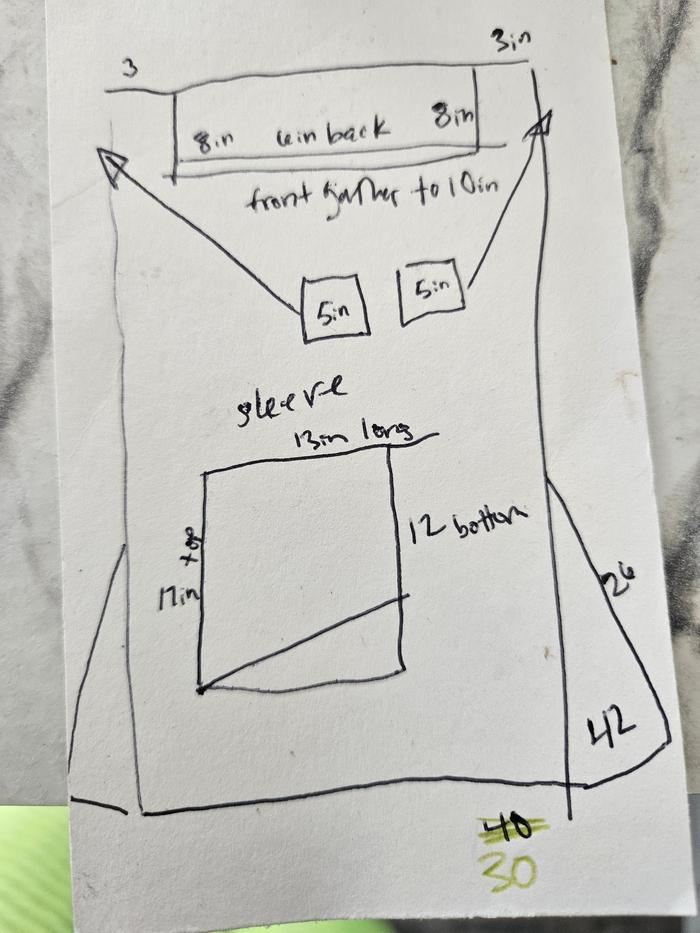 3in
3
8in
8in
6in back
front gather to 10in
5in
5in
sleeve
13in long
12 bottom
top
12in
26
42
40
30